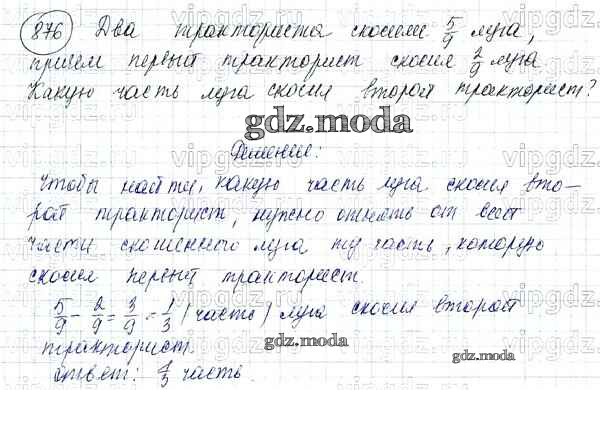 876 Два тракториста скосили 5/9 луга,
причем первый тракторист скосил 2/9 луга
Какую часть луга скосил второй тракторист?
gdz.moda
Решение:
Чтобы найти, какую часть луга скосил вто-
рой тракторист, нужно отнять от всей
части скошенного луга ту часть, которую
скосил первый тракторист.
5/9 - 2/9 = 3/9 = 1/3 (часть) луга скосил второй
тракторист.
gdz.moda
gdz.moda
Ответ: 1/3 часть.